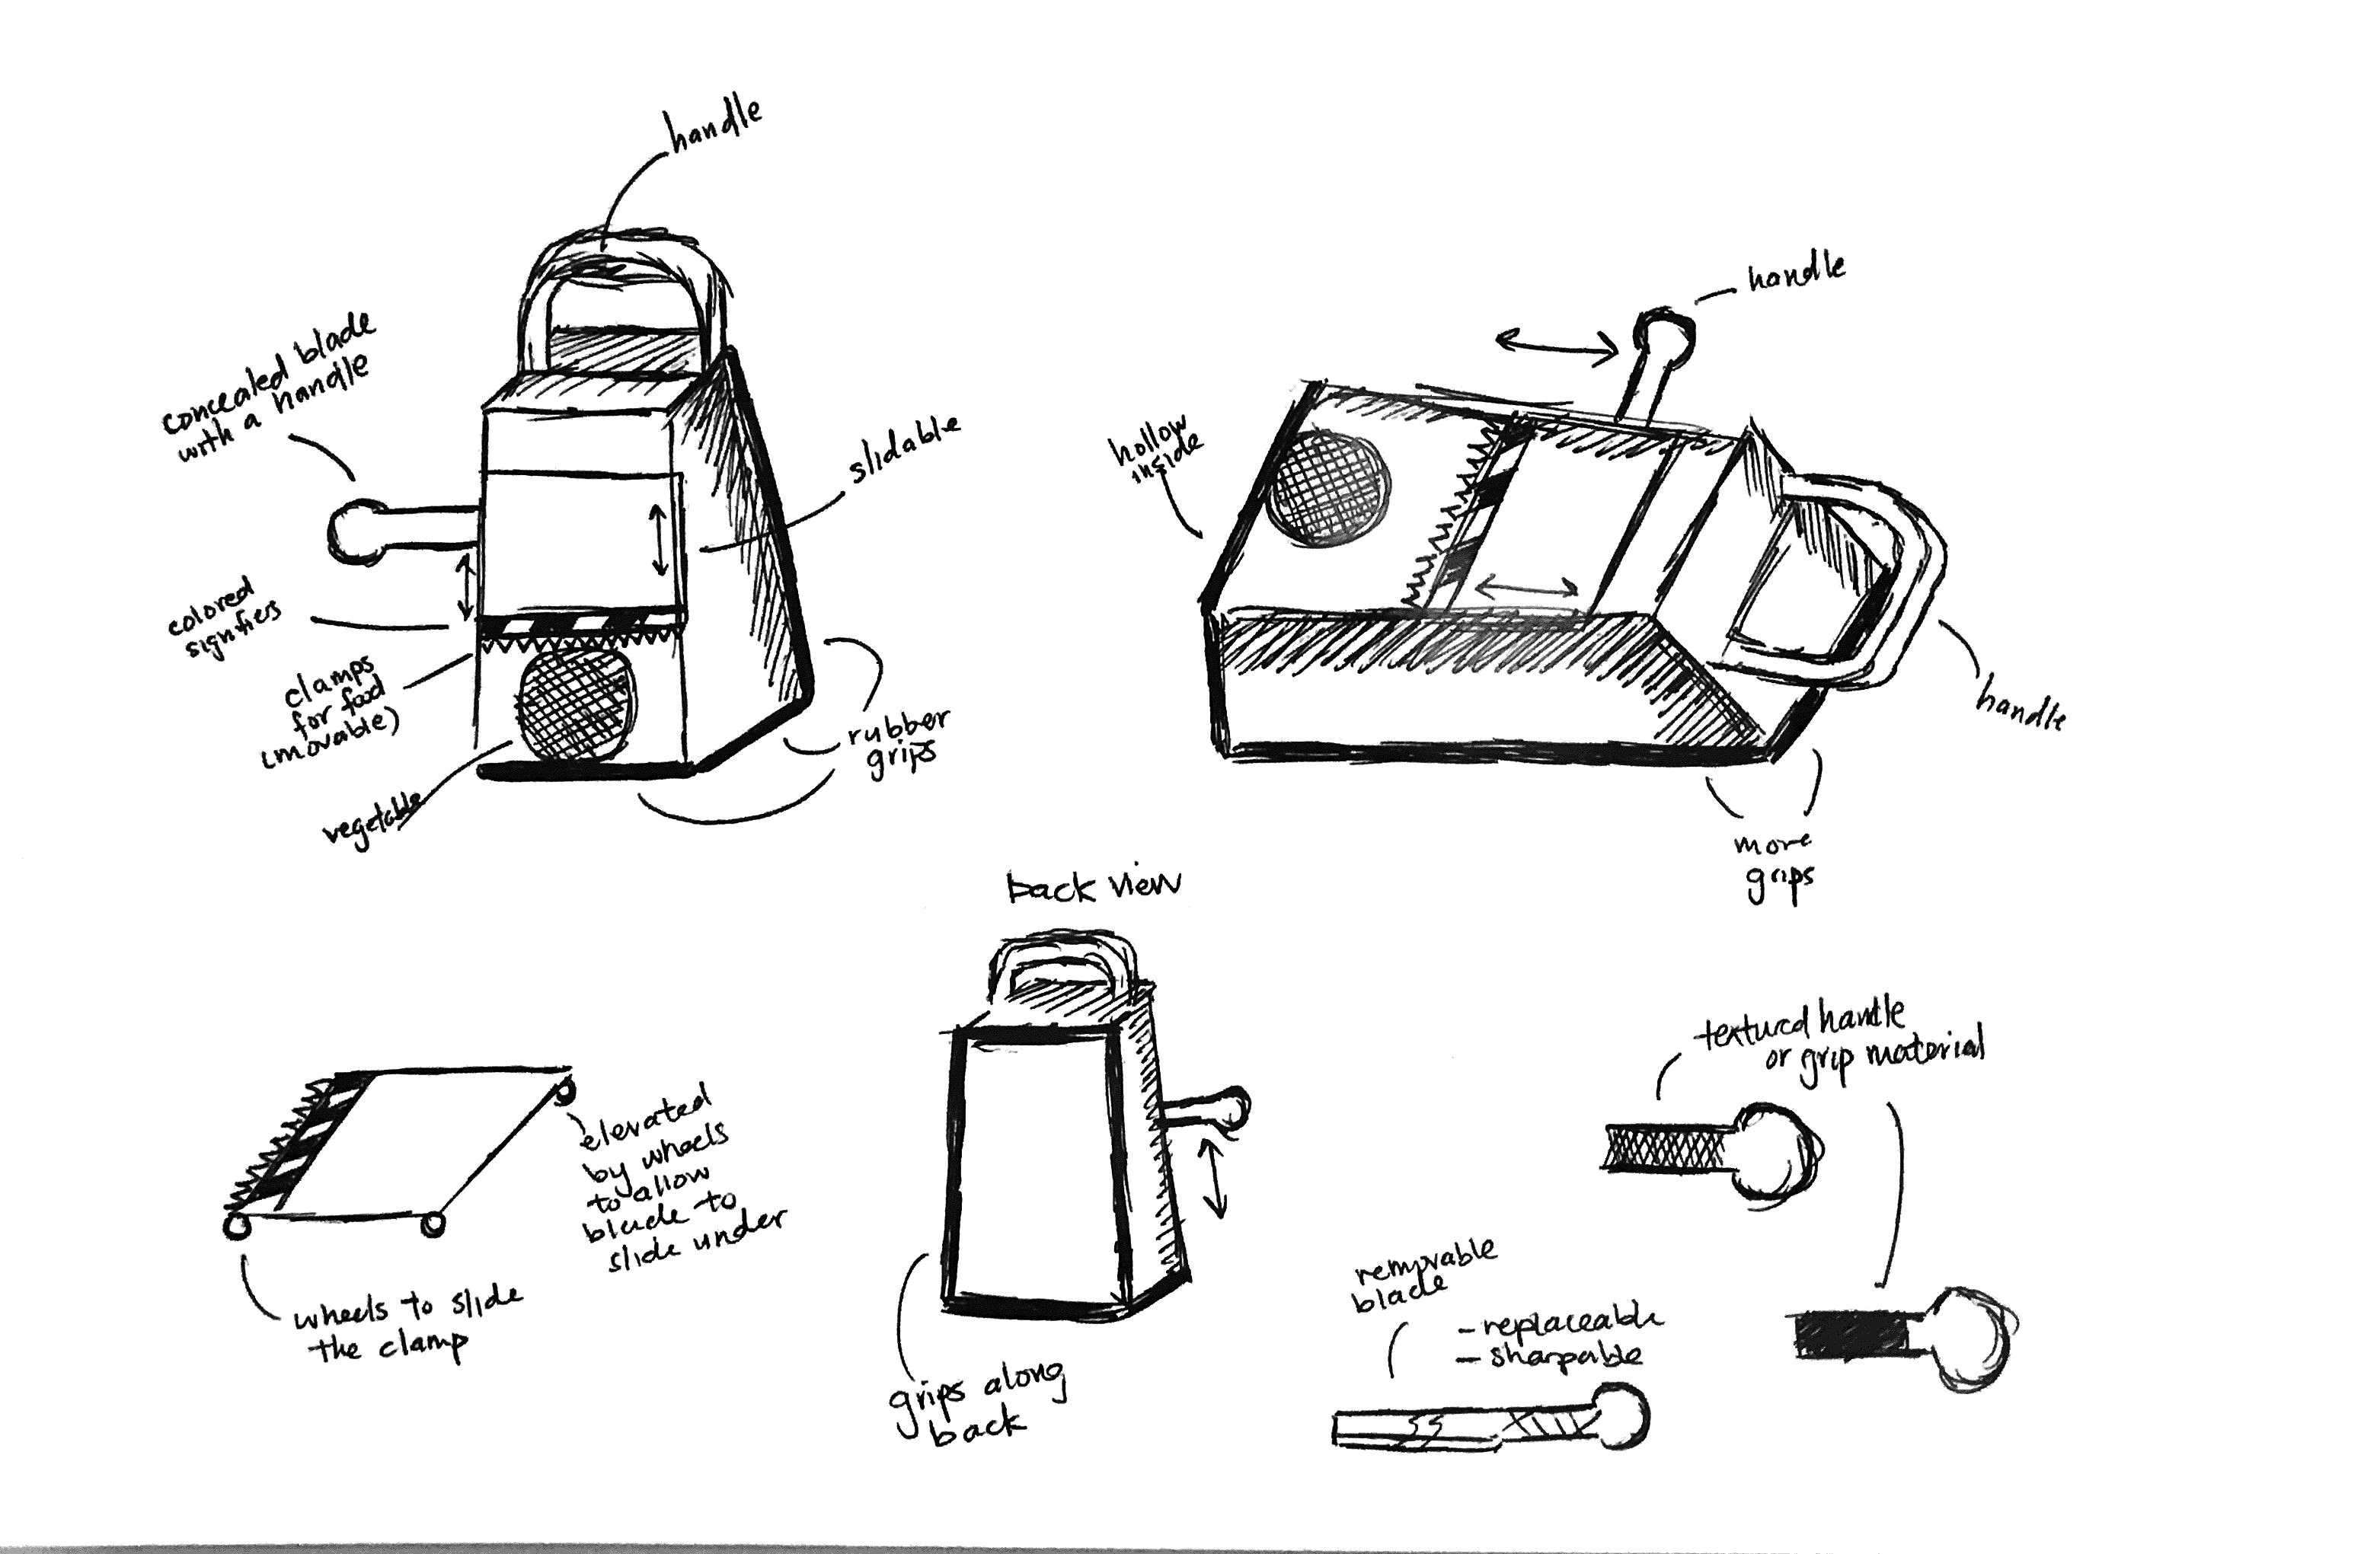 handle
concealed blade
with a handle
slidable
colored
signfiers
clamps
for food
(movable)
vegetable
rubber
grips
handle
hollow
inside
handle
more
grips
back view
elevated
by wheels
to allow
blade to
slide under
wheels to slide
the clamp
grips along
back
textured handle
or grip material
removable
blade
- replaceable
- sharpable